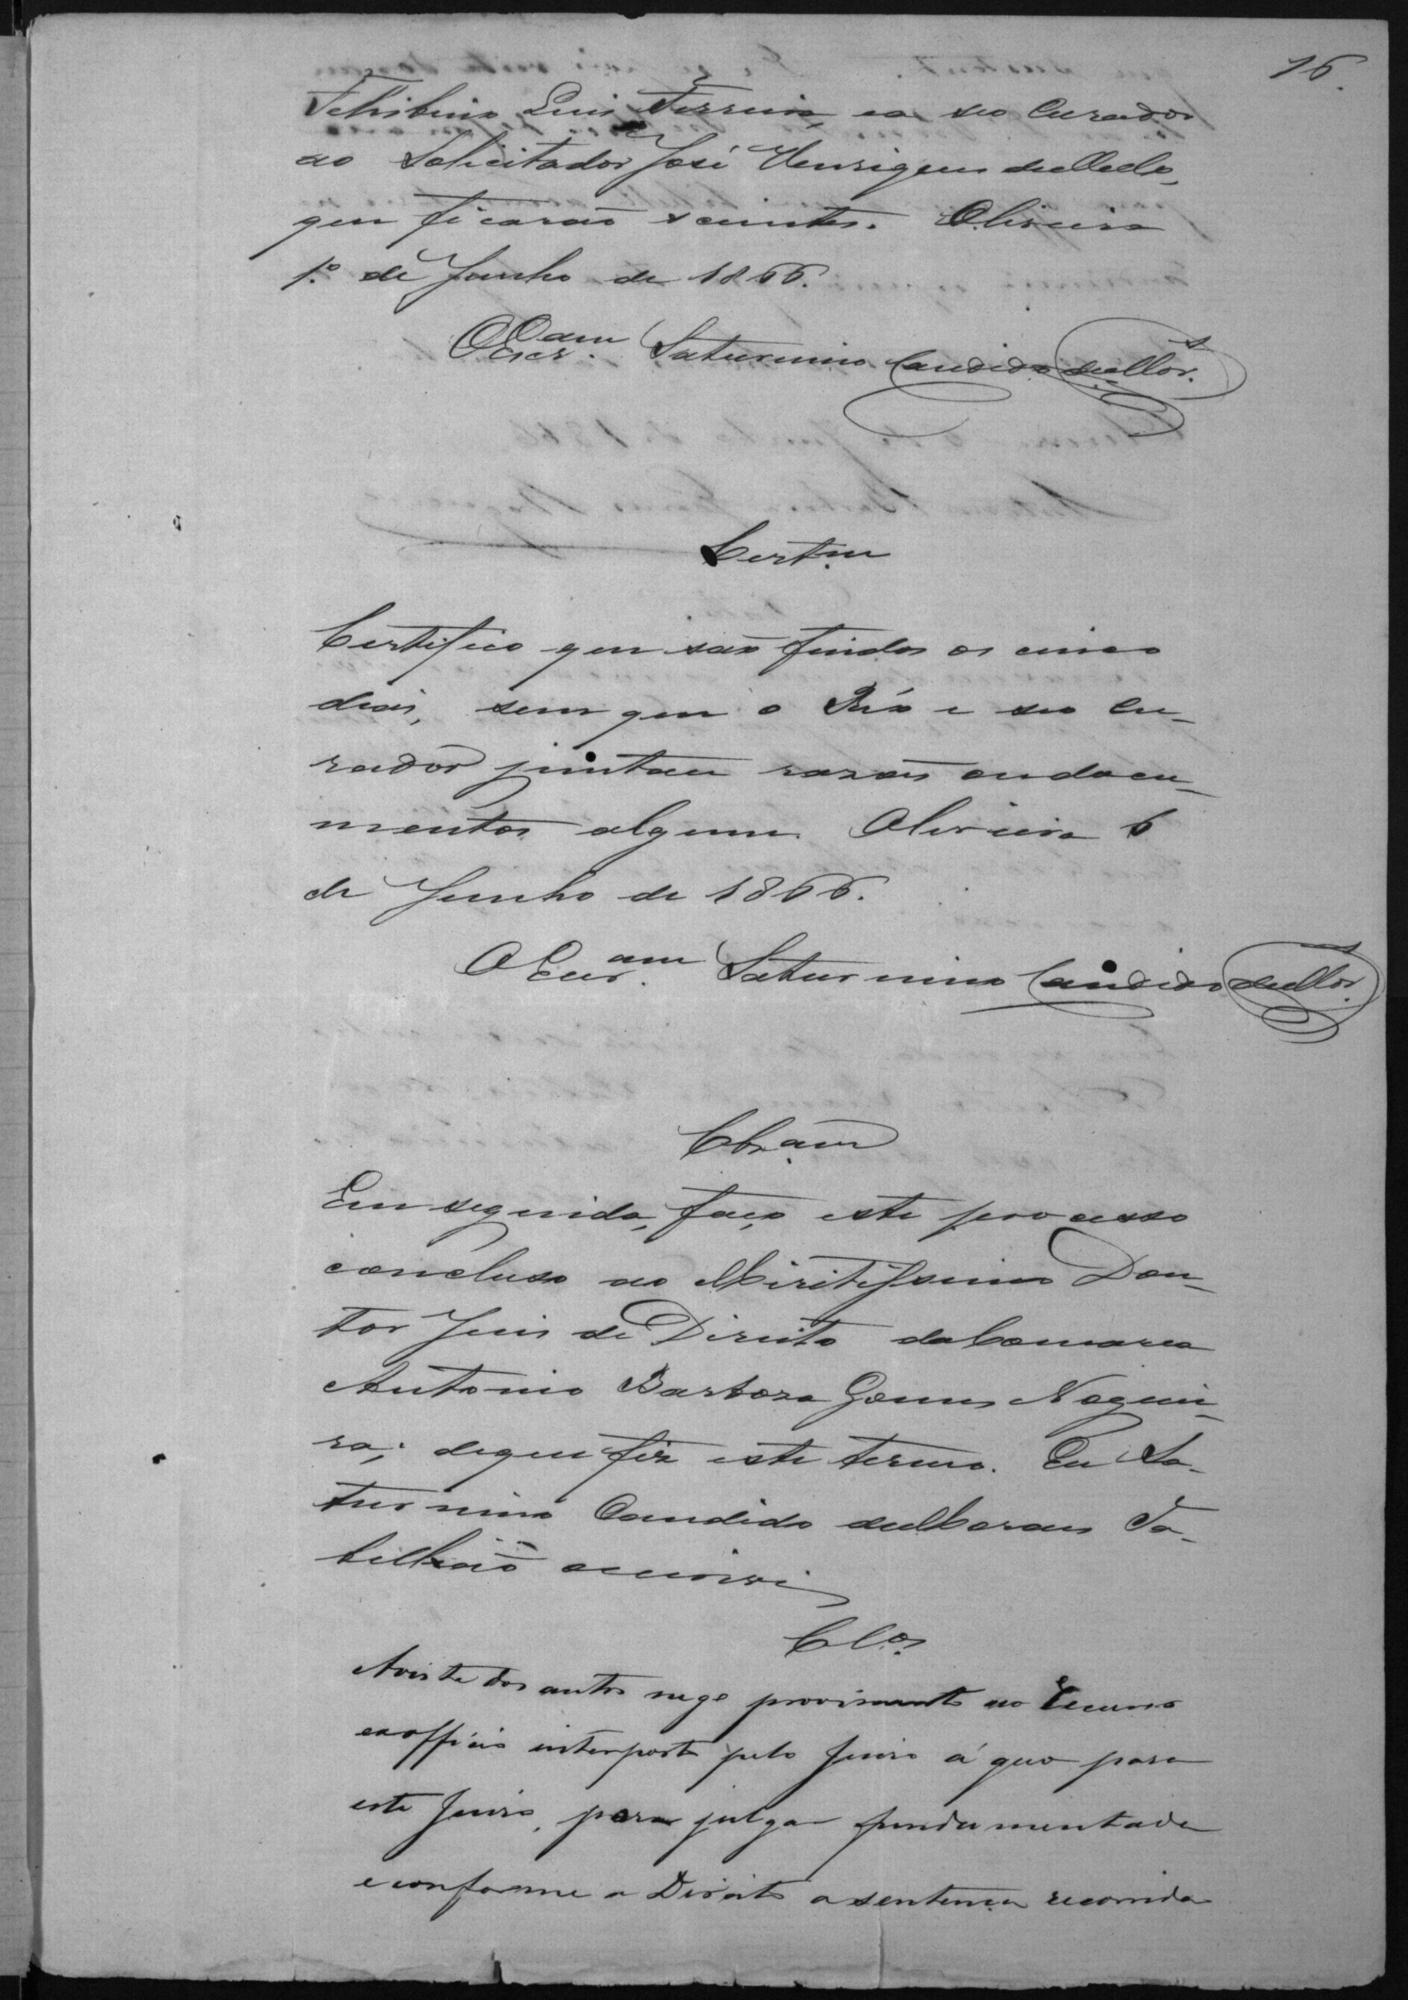 16.
Luis Ferreira, ea seo Curador
ao Solicitador José Henriques de Mello,
que ficarão scientes. Oliveira
1.º de Junho de 1866.
O Escr.am Saturnino Candido de Mor.s
Cert.m
Certifico que são findos os cinco
dias, sem que o Réo e seo Cu-
rador juntem razões ou docu-
mentos algum. Oliveira 6
de Junho de 1866.
O Escr.am Saturnino Candido de Mor.s
Clz.am
Em seguida, faço este processo
concluso ao Miritissimo Dou-
tor Juis de Direito da Comarca
Antonio Barboza Gomes Noguei-
ra; de que fiz este termo. Eu Sa-
turnino Candido de Moraes Ta-
billião o escrivi
Cl.os
A vista dos autos nego provimento ao Recurso
exofficio interposto pelo Juiso a quo para
este Juiso, para julgar fundamentada
e conforme a Direito a sentença recorrida